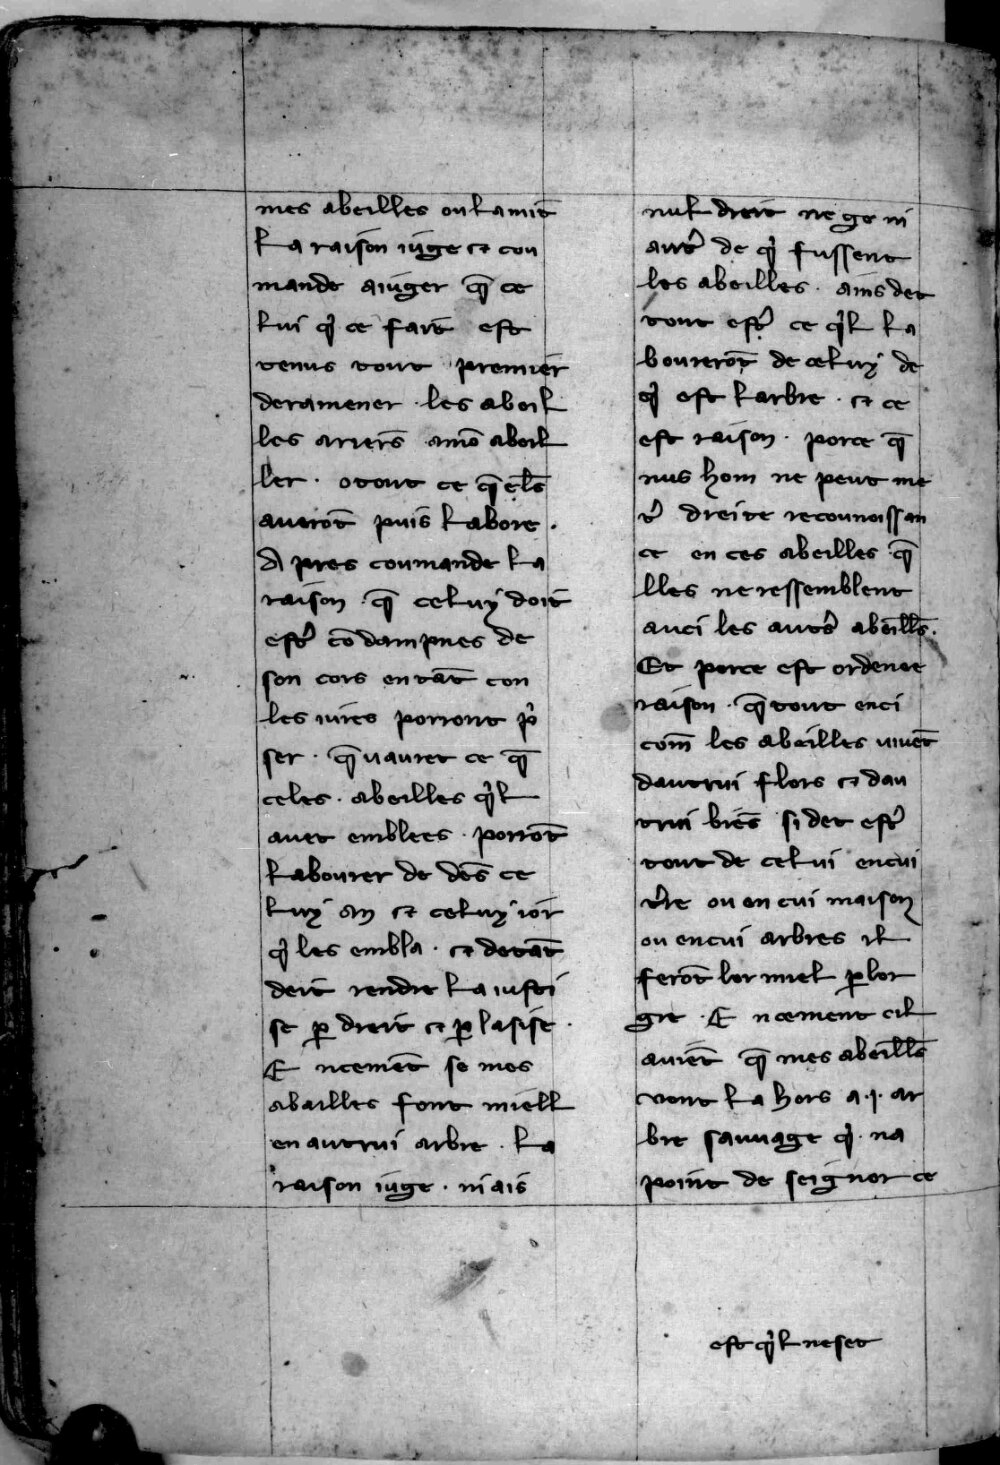 mes abeilles ou lamist
la raison iuge et cou
mande aiuger q̄ ce
lui qi ce fait est
tenus tout premier
deramener · les abeil
les arierēs · amō abeil
ler · otout ce q̄ elēs
auerōt puis labore ·
A pres coumande la
raison · q̄ celuy doit
estr̾ cōdampnes de
son cors entāt con
les iures porront p̾
ser · q̄ vauret ce q̄
celes · abeilles qil
auet emblees · porrōt
labourer de dēs ce
luy an et celuy ior
qi les embla · et detāt
deit rendre la iusti
se ꝑ dreit et ꝑ lasise ·
E ncemēt se mes
abailles font miell
en autrui arbre · la
raison iuge · niais
nul dreit ne ge ni
autr̾ de qi fussent
les abeilles · ains det
tout estr̾ ce qil la
bourerōt de celuy de
qi est larbre · et ce
est raison · porce q̄
nus hom ne peut me
tr̾ dreite recounoissan
ce en ces abeilles q̄
lles ne ressemblent
auci les autr̾s abeill̄s ·
Et porce est ordenee
raison · q̄ tout enci
com̄ les abeilles viuēt
dautrui flors et dau
trui biēs si det estr̾
tout de celui encui
t̾re ou en cui maison
ou encui arbres il
ferōt lor miel ꝑ lor
gre · E ncement cil
auiēt q̄ mes abeill̄s
vont la hors a ·i· ar
bre sauuage qi · na
point de seignor ce
est qil ne set